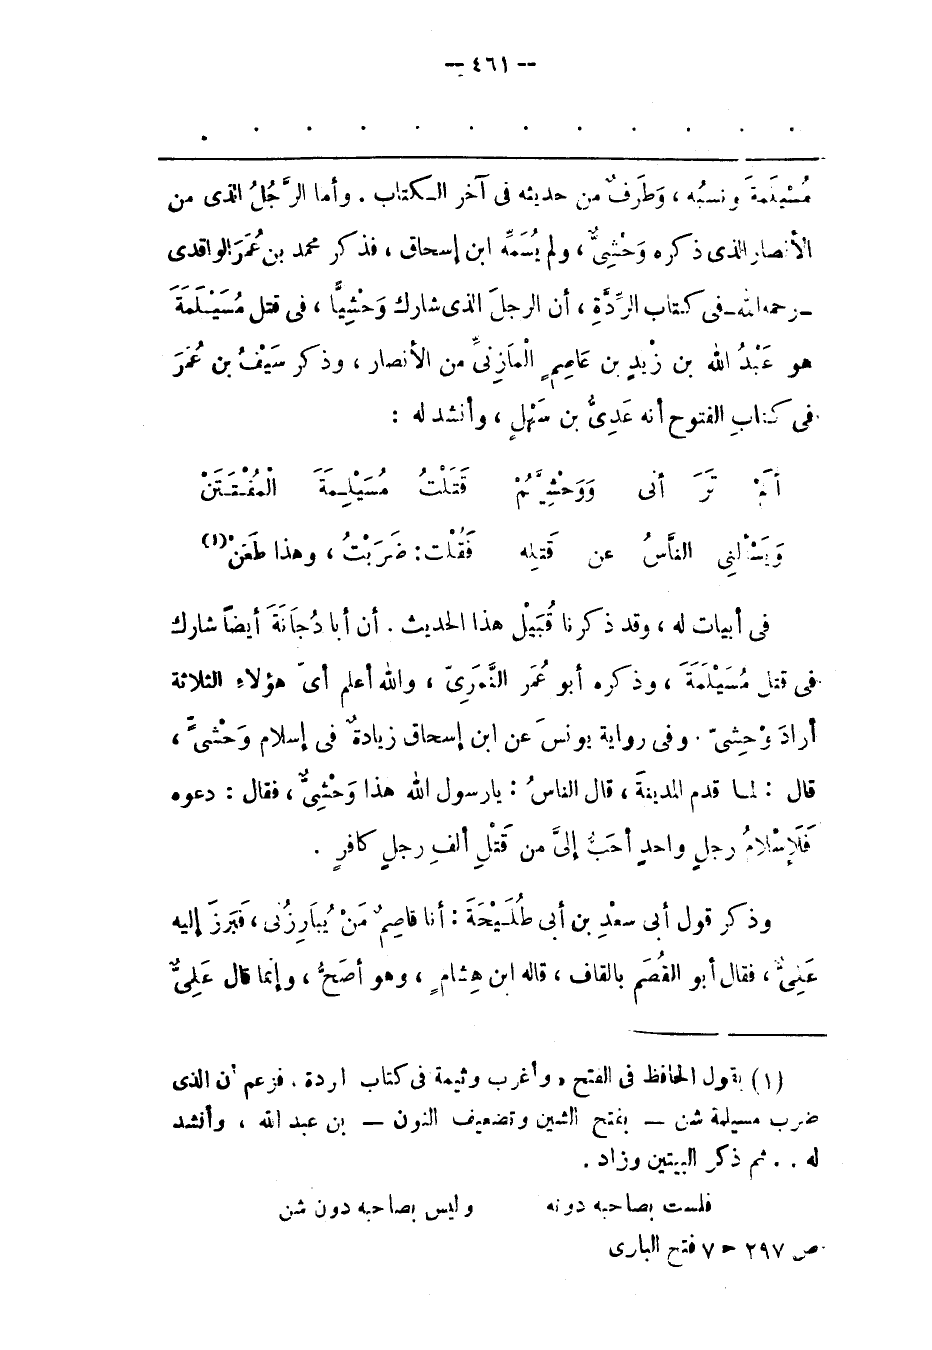 -- ٤٦١ --
. . . . . . . . . . . .
مُسَيْلَمَةَ ونسبُه ، وَطَرَفٌ من حديثه فى آخر الكتاب . وأما الرَّجُلُ الذى من
الأنصار الذى ذكره وَحْشِىٌّ ، ولم يُسَمِّه ابن إسحاق ، فذكر محمد بن عُمَرَ الواقدى
ــ رحمه الله ــ فى كتاب الرِّدَّةِ ، أن الرجلَ الذى شارك وَحْشِيًّا ، فى قتل مُسَيْلَمَةَ
هو عَبْدُ الله بن زَيْدِ بن عَاصِمٍ الْمَازِنِىُّ من الأنصار ، وذكر سَيْفُ بن عُمَرَ
فى كتابِ الفتوح أنه عَدِىُّ بن سَهْلٍ ، وأنشد له :
أَلَمْ تَرَ أنى وَوَحْشِيَّهُمْ قَتَلْتُ مُسَيْلِمَةَ الْمُفْتَتَنْ
وَيَسْأَلُنِى النَّاسُ عن قَتْلِه فَقُلْت : ضَرَبْتُ ، وهذا طَعَنْ(١)
فى أبيات له ، وقد ذكرنا قُبَيْلَ هذا الحديث . أن أبا دُجَانَةَ أيضاً شارك
فى قتل مُسَيْلَمَةَ ، وذكره أبو عُمَر النَّمَرِىّ ، والله أعلم أىّ هؤلاءِ الثلاثة
أرادَ وَحْشِىّ . وفى رواية يونسَ عن ابن إسحاق زيادةٌ فى إسلام وَحْشىٍّ ،
قال : لما قدم المدينةَ ، قال الناسُ : يارسول الله هذا وَحْشِىٌّ ، فقال : دعوه
فَلَإِسْلَامُ رجلٍ واحدٍ أحَبُّ إلىَّ من قَتْلِ ألفِ رجلٍ كافرٍ .
وذكر قول أبى سعْدِ بن أبى طُلَيْحَةَ : أنا قاصِمٌ مَنْ يُبَارِزُنى ، فَبَرزَ إليه
عَلِىٌّ ، فقال أبو القُصَم بالقاف ، قاله ابن هِشامٍ ، وهو أصَحُّ ، وإنما قال عَلِىٌّ
(١) يقول الحافظ فى الفتح « وأغرب وثيمة فى كتاب الردة . فزعم أن الذى
ضرب مسيلمة شن — بفتح الشين وتضعيف النون — بن عبد الله ، وأنشد
له . . ثم ذكر البيتين وزاد .
فلست بصاحبه دونه وليس بصاحبه دون شن
ص ٢٩٧ ح ٧ فتح البارى